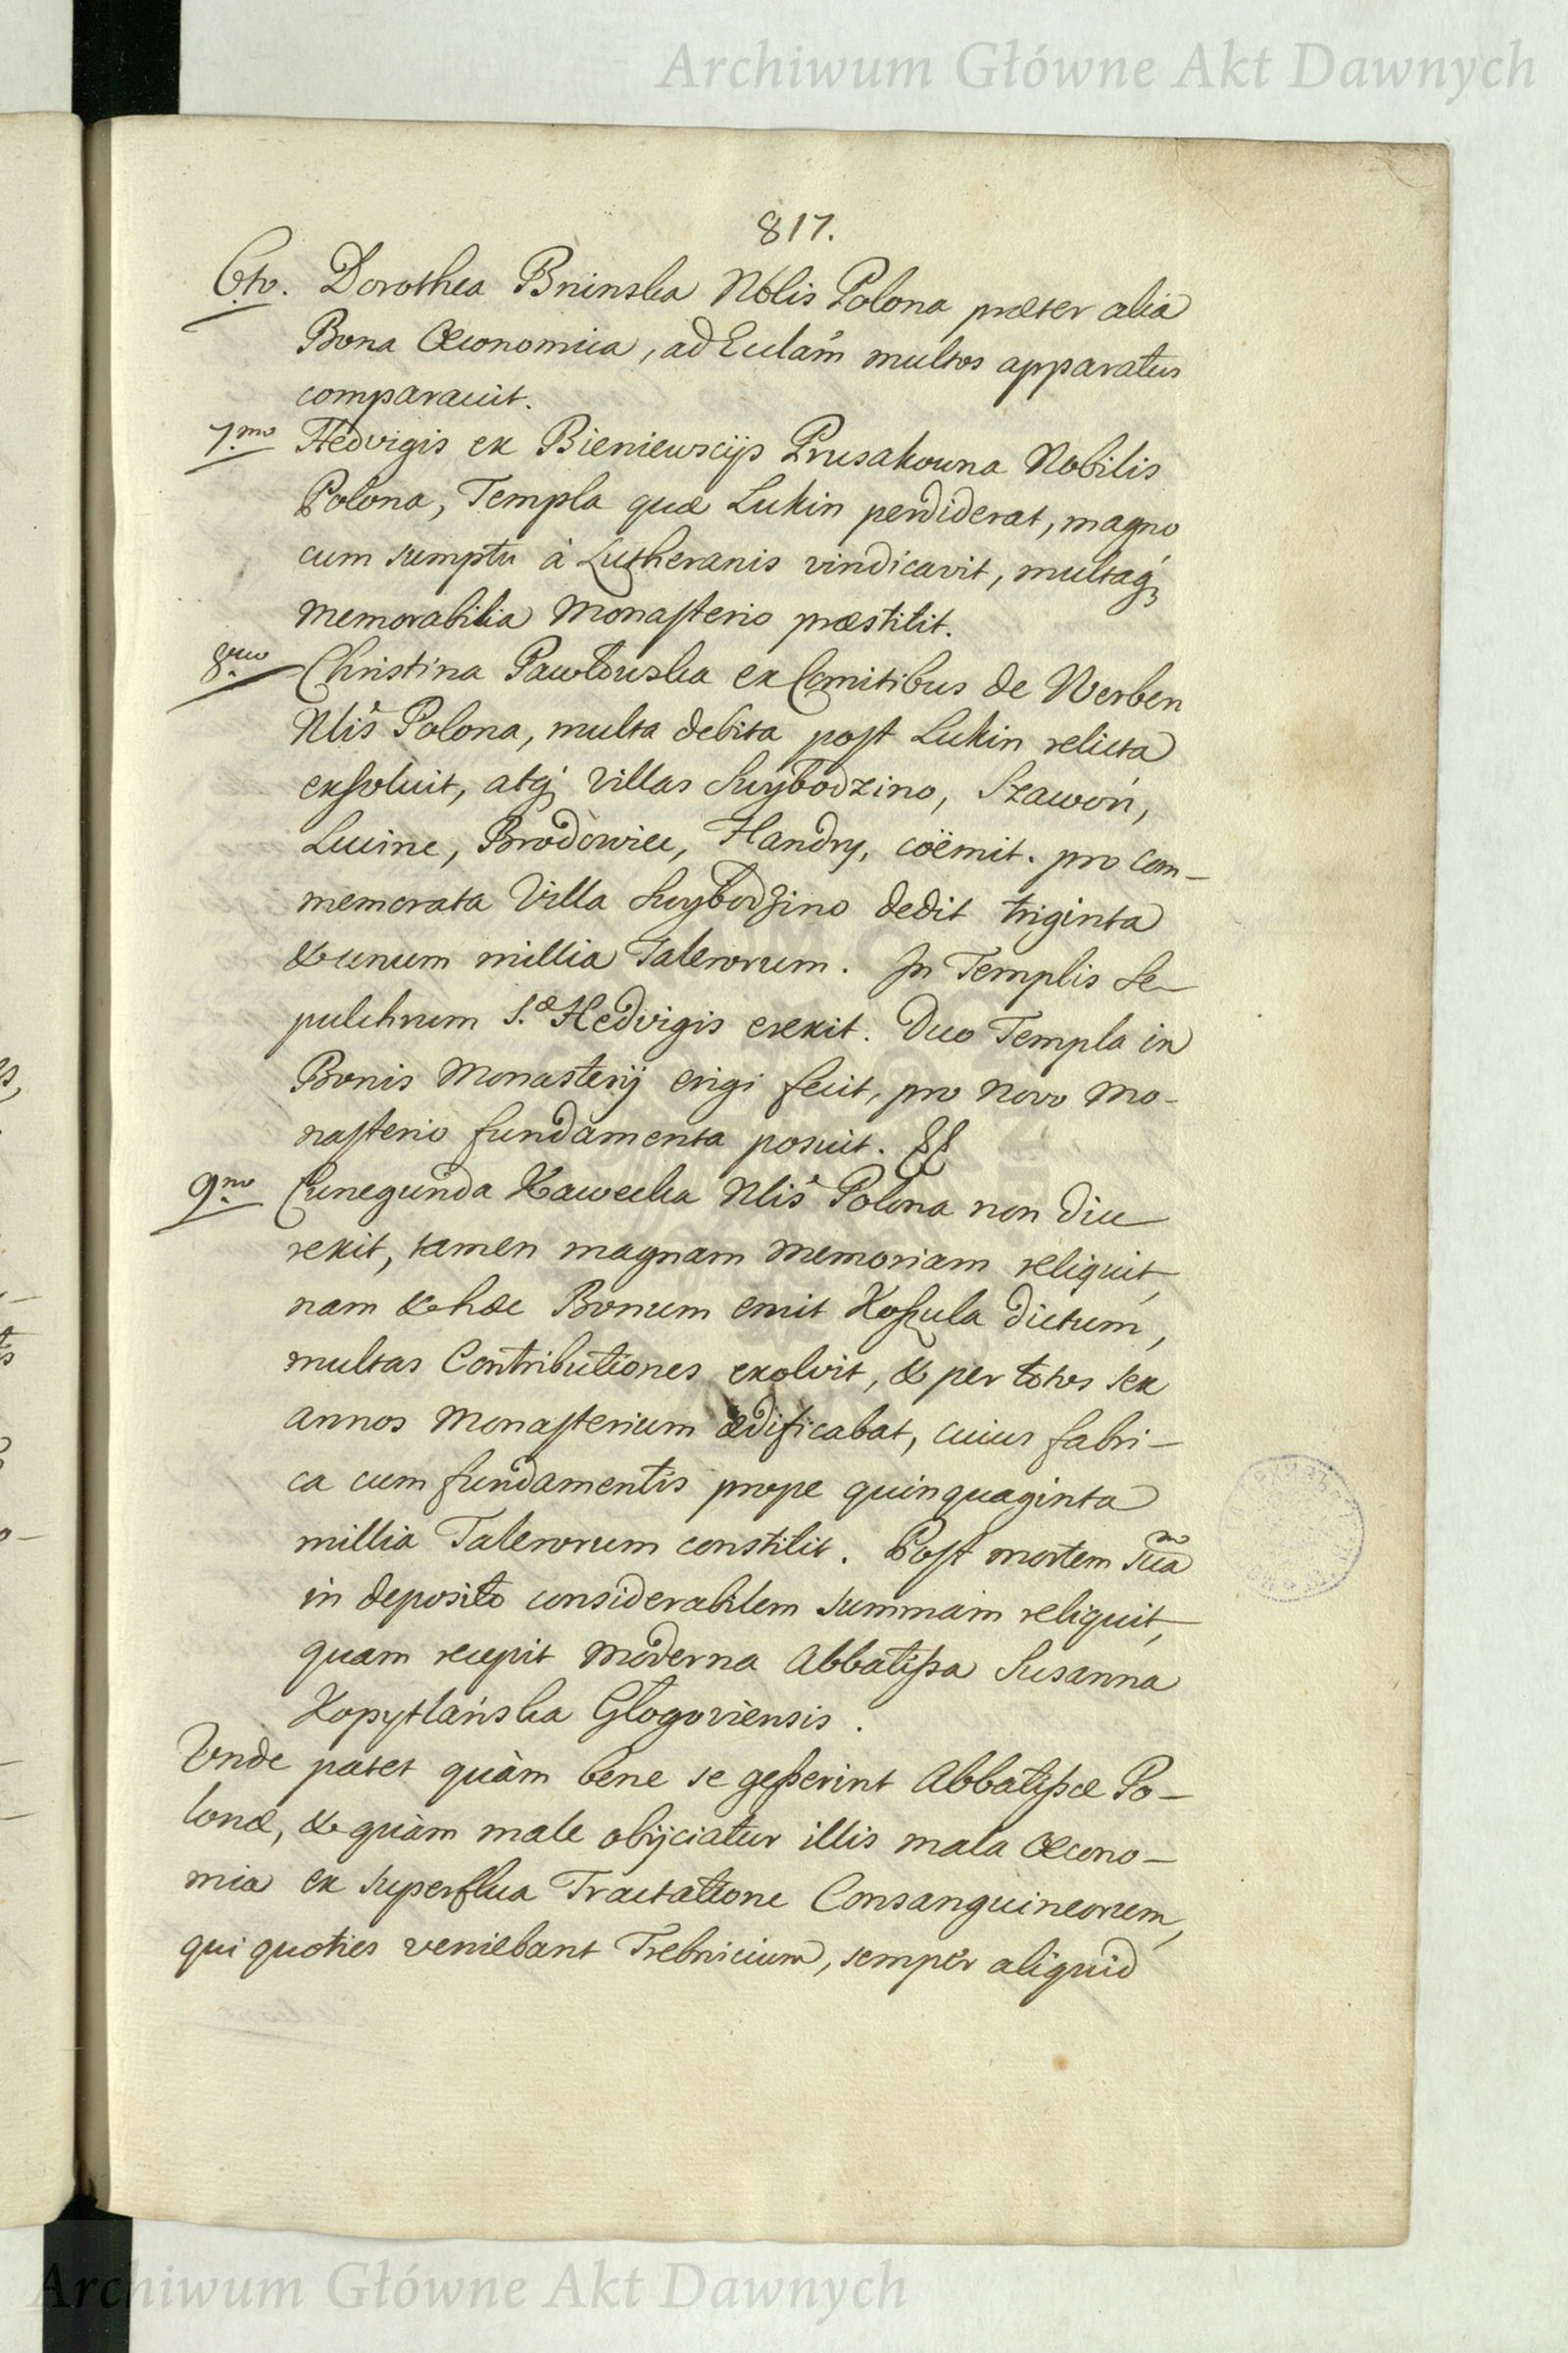 Archiwum Główne Akt Dawnych
817.
6to. Dorothea Bninska Nblis Polona præter alia
Bona Œconomica, ad Eclam multos apparatus
comparavit.
7.mo Hedvigis ex Bieniewscijs Prusakowna Nobilis
Polona, Templa quæ Lukin perdiderat, magno
cum sumptu à Lutheranis vindicavit, multaq;
memorabilia Monasterio præstitit.
8.vo Christina Pawłowska ex Comitibus de Werben
Nlis Polona, multa debita post Lukin relicta
exsoluit, atq; villas Swybodzino, Szawoń,
Lucine, Brodowice, Handry, coëmit. pro com-
memorata Villa Swybodzino dedit triginta
& unum millia Talerorum. In Templis Se-
pulchrum S.æ Hedvigis erexit. Duo Templa in
Bonis Monasterij erigi fecit, pro novo Mo-
nasterio fundamenta posuit.
9.no Cunegunda Kawecka Nlis Polona non diu
rexit, tamen magnam memoriam reliquit,
nam & hæc Bonum emit Koszula dictum,
multas Contributiones exolvit, & per totos sex
annos Monasterium ædificabat, cuius fabri-
ca cum fundamentis prope quinquaginta
millia Talerorum constitit. Post mortem suam
in deposito considerabilem summam reliquit,
quam recepit moderna Abbatissa Susanna
Kopytlańska Głogoviensis.
Unde patet quàm bene se gesserint Abbatissæ Po-
lonæ, & quàm male obijciatur illis mala Œcono-
mia ex superflua Tractatione Consanguineorum,
qui quoties veniebant Trebnicium, semper aliquid
Archiwum Główne Akt Dawnych